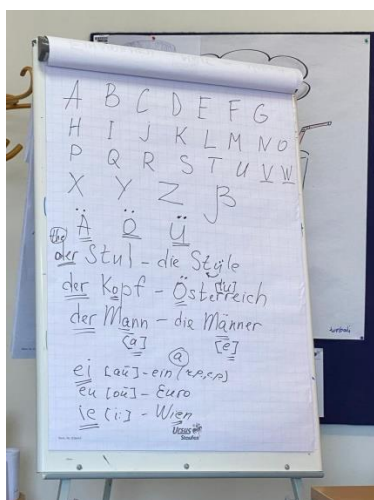 A B C D E F G
H I J K L M N O
P Q R S T U V W
X Y Z β
Ä Ö Ü
the
der Stul - die Styjle
[tu]
der Kopf - Österreich
der Mann - die Männer
[a] [e]
a
ei [aй] - ein
eu [oй] - Euro
ie [i:] - Wien
URSUS
Staufen